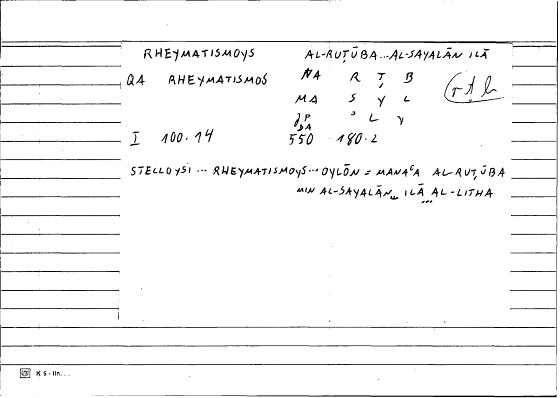 RHEYMATISMOYS AL-RUṬŪBA...AL-SAYALĀN ILĀ
QA RHEYMATISMOS NA R Ṭ B (rṭb)
MA S Y L
P
SA ɔ L Y
I 100.14 550 180.2
STELLOYSI ... RHEYMATISMOYS... OYLŌN = MANAʿA AL-RUṬŪBA
MIN AL-SAYALĀN ILĀ AL-LITHA
K 5 - lin...